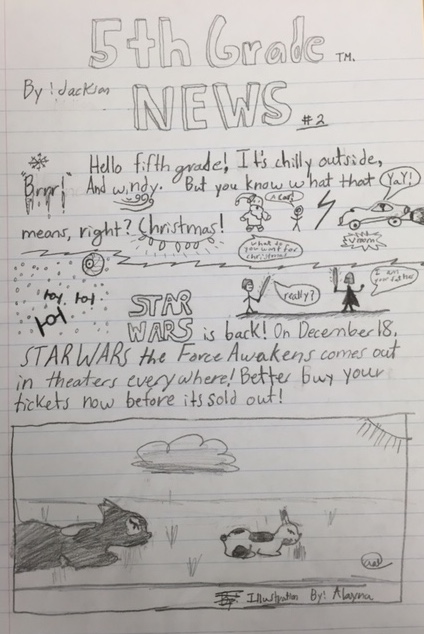 5th Grade TM.
By: Jackson
NEWS #2
Hello fifth grade! It's chilly outside,
"Brrr!"
And windy. But you know what that
YAY!
means, right? Christmas!
A car!
what do you want for christmas
STAR WARS
really?
I am your father
is back! On December 18,
STAR WARS the Force Awakens comes out
in theaters everywhere! Better buy your
tickets now before its sold out!
Illustration By: Alayna